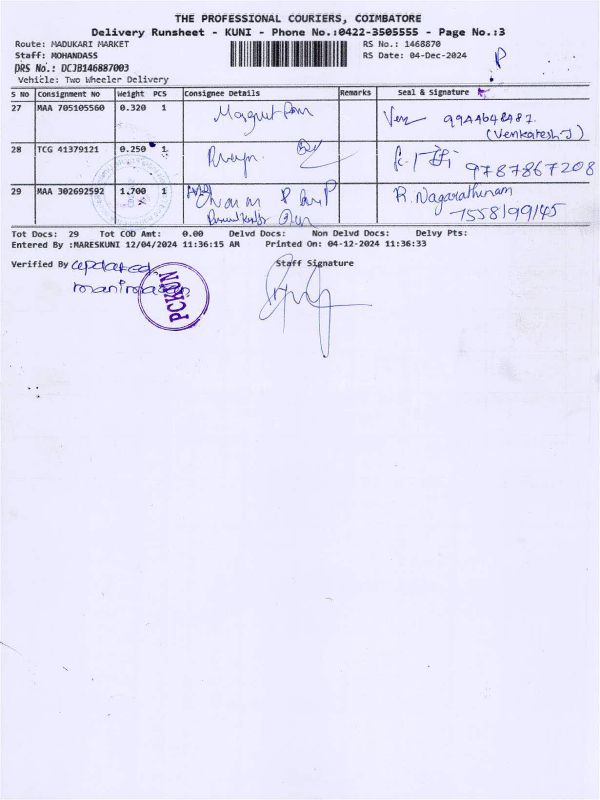 THE PROFESSIONAL COURIERS, COIMBATORE
Delivery Runsheet - KUNI - Phone No.:0422-3505555 - Page No.:3
Route: MADUKARI MARKET
RS No.: 1468870
Staff: MOHANDASS
RS Date: 04-Dec-2024
P
DRS No.: DCJB146887003
Vehicle: Two Wheeler Delivery
S No Consignment No Weight PCS Consignee Details Remarks Seal & Signature
27 MAA 705105560 0.320 1
(Venkatesh-J)
28 TCG 41379121 0.250 1 9787867208
29 MAA 302692592 1.700 1 R. Nagarathinam
7558199145
Tot Docs: 29 Tot COD Amt: 0.00 Delvd Docs: Non Delvd Docs: Delvy Pts:
Entered By :MARESKUNI 12/04/2024 11:36:15 AM Printed On: 04-12-2024 11:36:33
Verified By updated Staff Signature
PCKUN